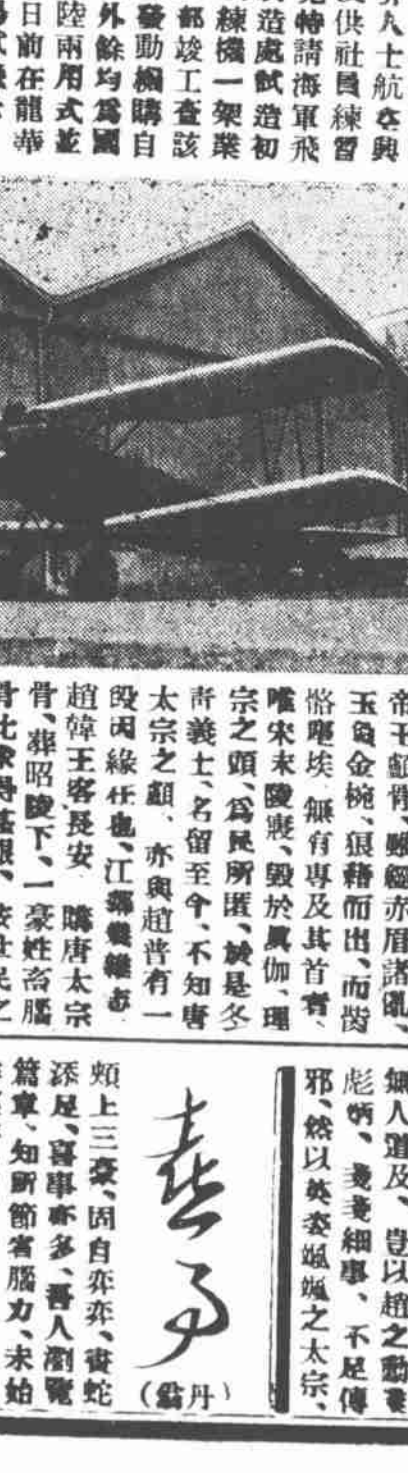 界人士航空興
供社員練習
特請海軍飛
造處試造初
練機一架業
部竣工查該
發動機購自
外餘均為國
陸兩用式並
日前在龍華
帝王顱骨、雖經赤眉諸亂、
玉魚金椀、狼藉而出、而
骼塵埃、無有專及其首者、
唯宋末陵寢、毀於真伽、理
宗之頭、為民所匿、於是冬
青義士、名留至今、不知唐
太宗之顱、亦與趙普有一
段因緣在也、江鄰幾雜志
趙韓王客長安 購唐太宗
骨、葬昭陵下、一豪姓畜腦
無人道及、豈以趙之勳業
彪炳、戔戔細事、不足傳
邪、然以英姿颯颯之太宗、
喜多
(丹翁)
頰上三毫、固自弈弈、畫蛇
添足、喜事亦多、吾人瀏覽
篇章、知所節省腦力、未始